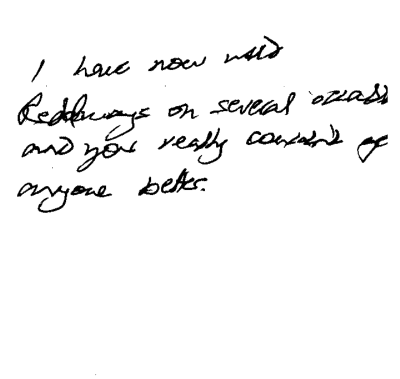 I have now used
Reddaways on several occas
and you really couldn't g
anyone better.